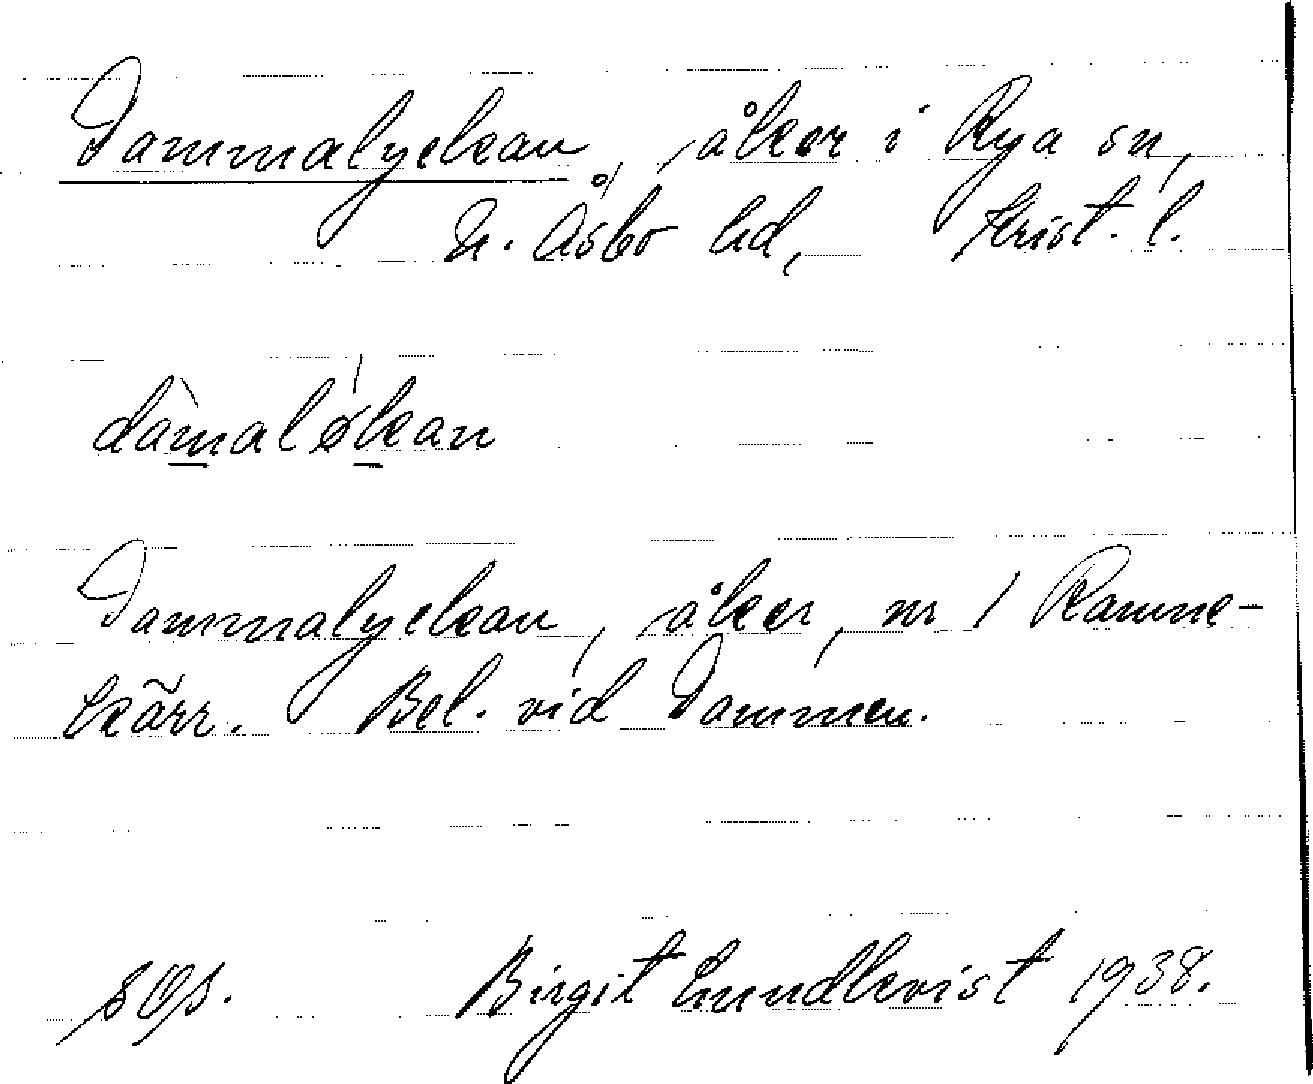 Dammalyckan, åker i Rya sn,
N. Åsbo hd, Krist. l.
dàmalǿkan
Dammalyckan, åker, nr 1 Ramne-
kärr. Bel. vid Dammen.
Birgit Lundkvist 1938.